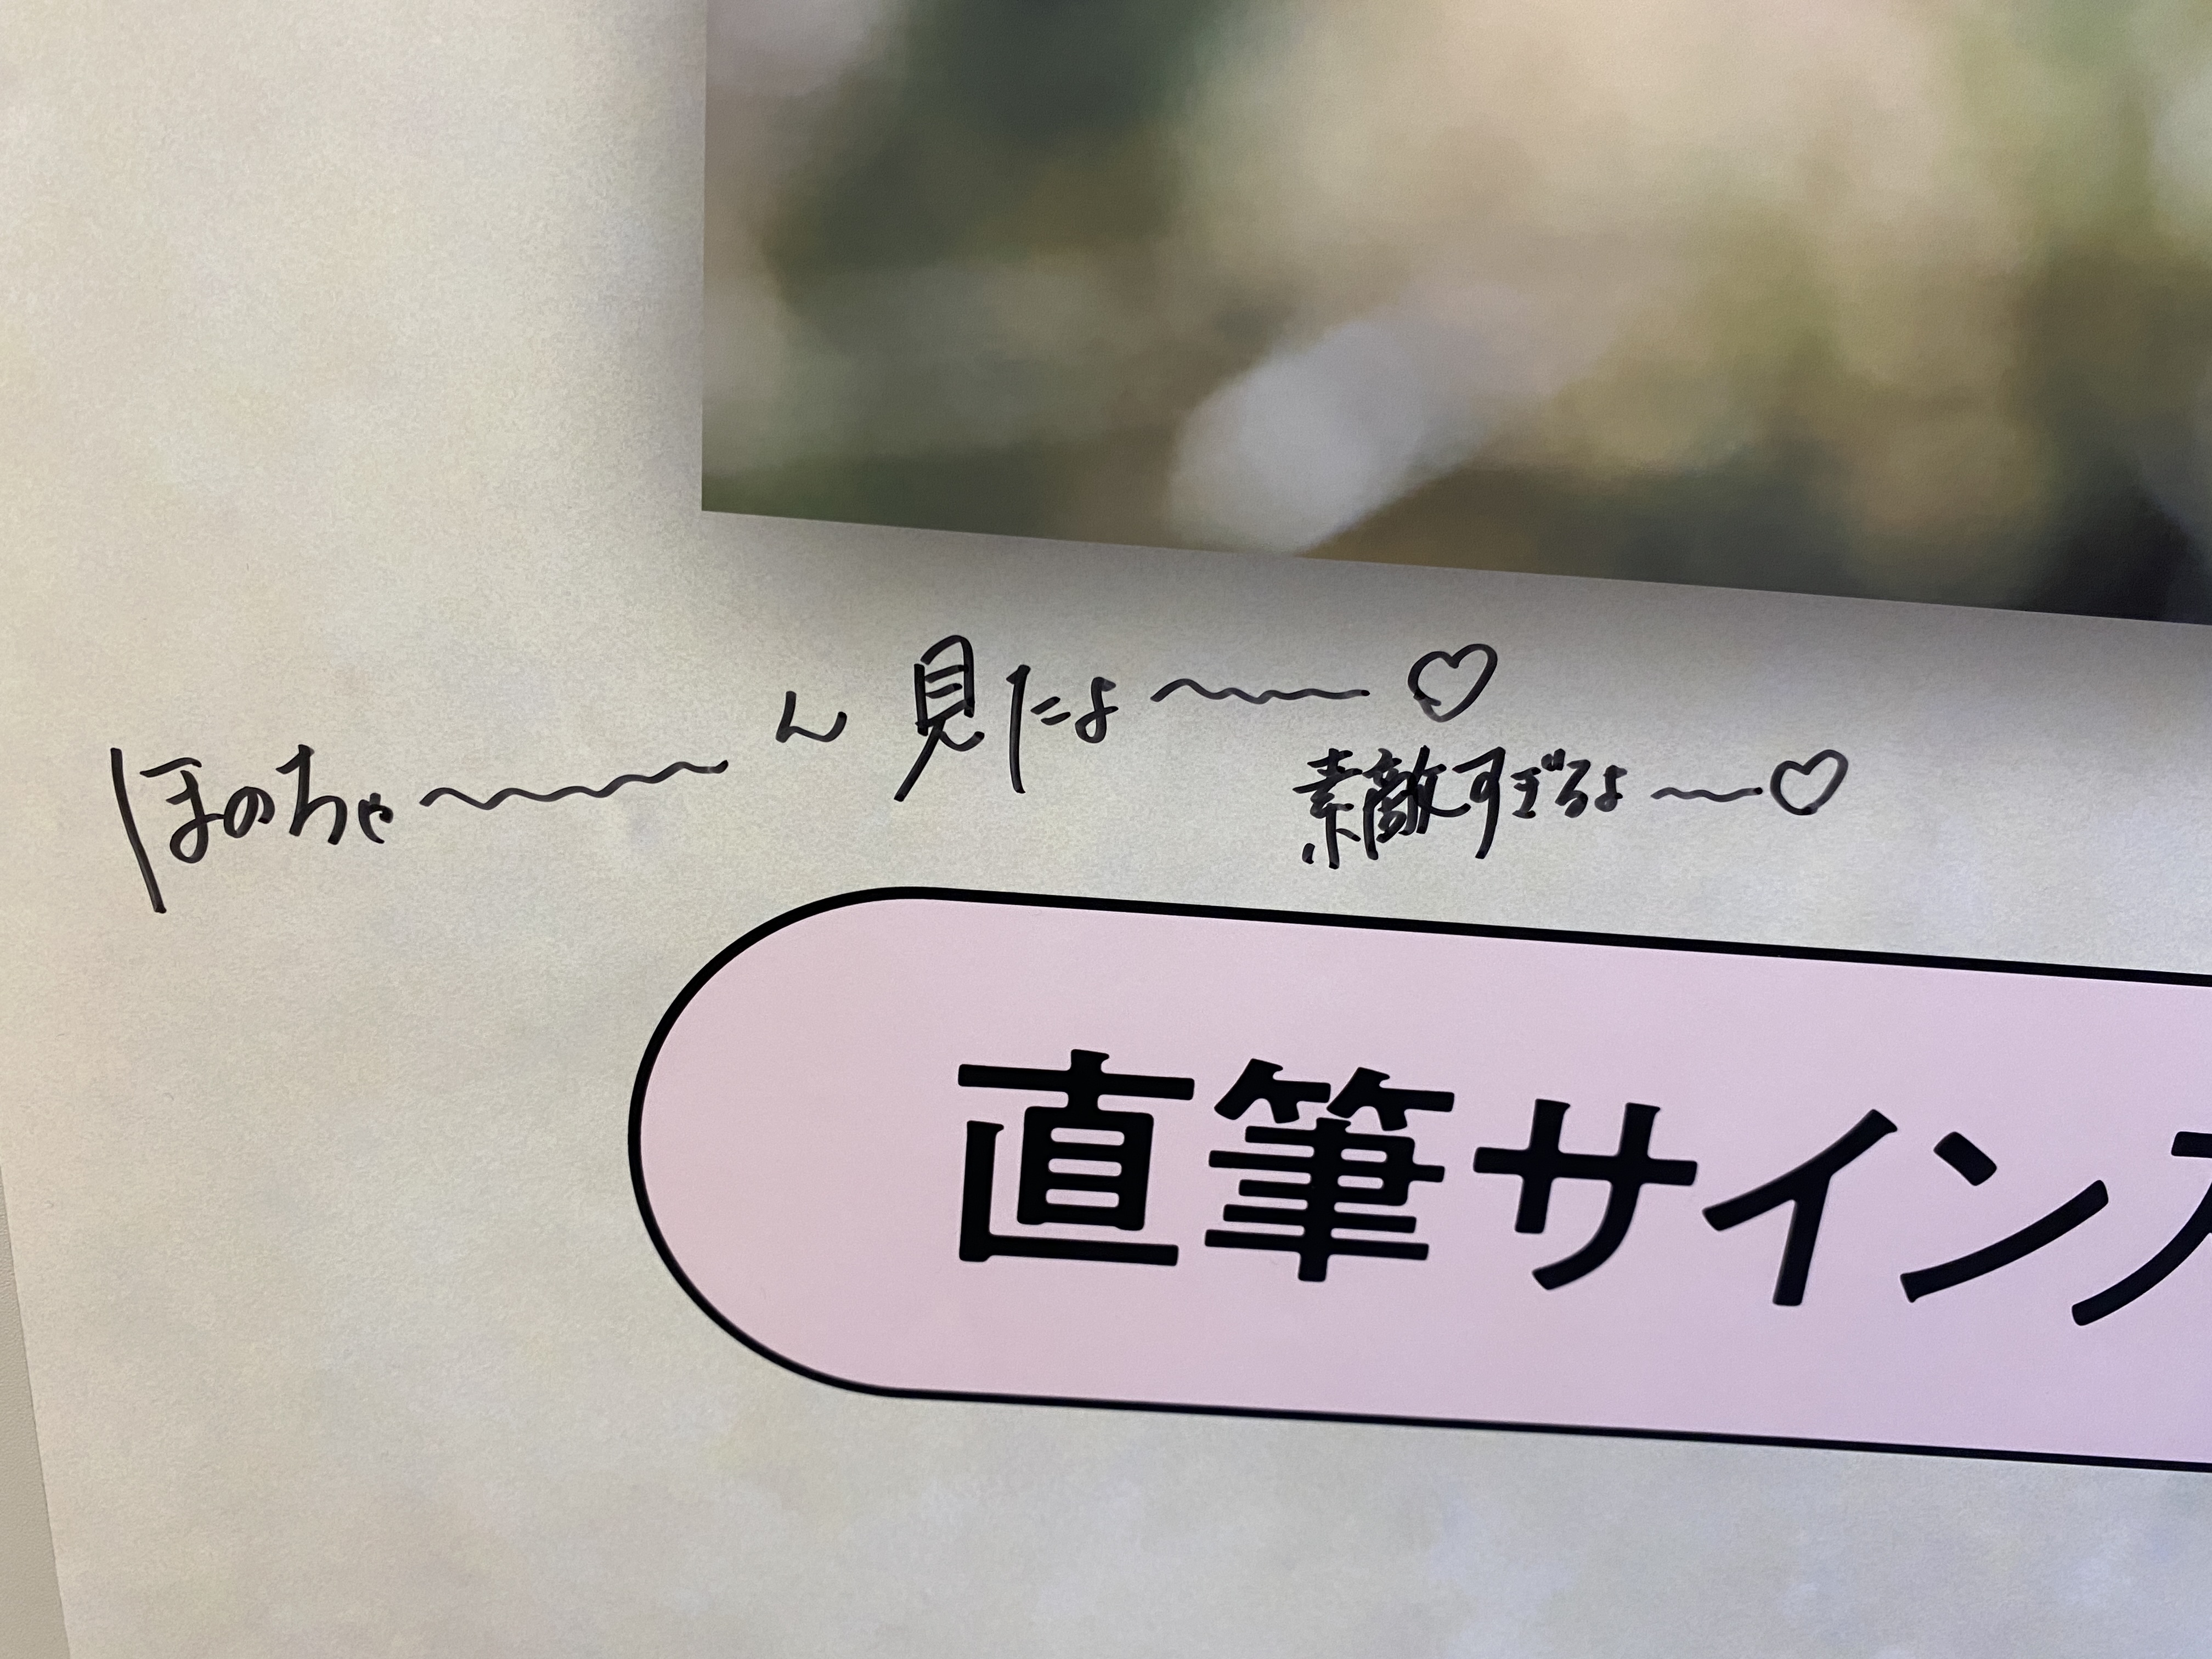 ほのちゃ〜〜〜ん 見たよ〜〜♡
素敵すぎるよ〜♡
直筆サイン入